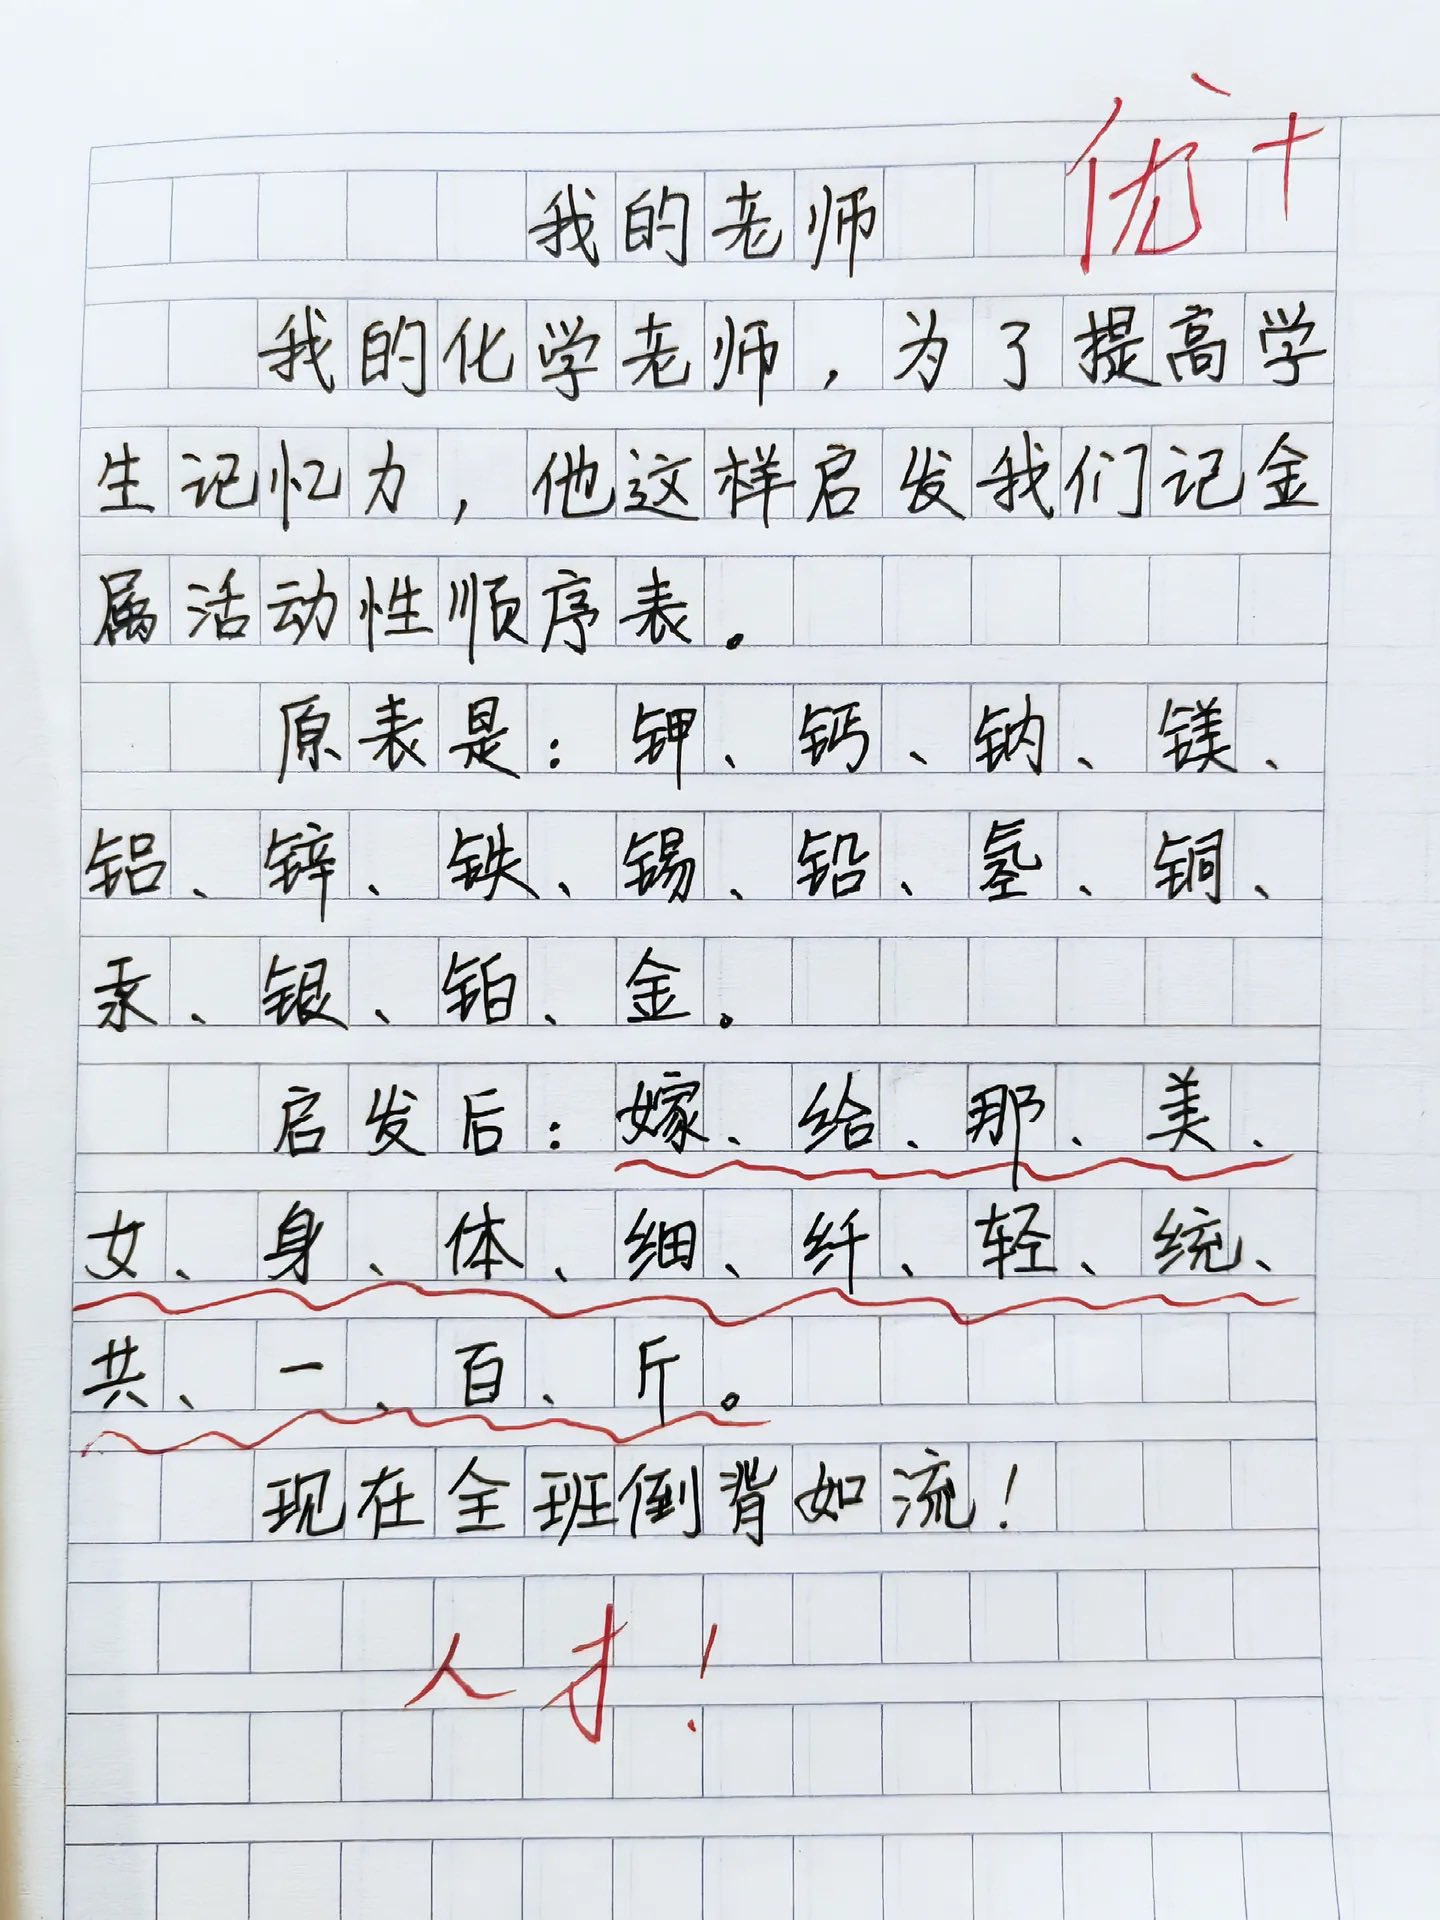 优+
我的老师
我的化学老师，为了提高学
生记忆力，他这样启发我们记金
属活动性顺序表。
原表是：钾、钙、钠、镁、
铝、锌、铁、锡、铅、氢、铜、
汞、银、铂、金。
启发后：嫁、给、那、美、
女、身、体、细、纤、轻、统、
共、一、百、斤。
现在全班倒背如流！
人才！